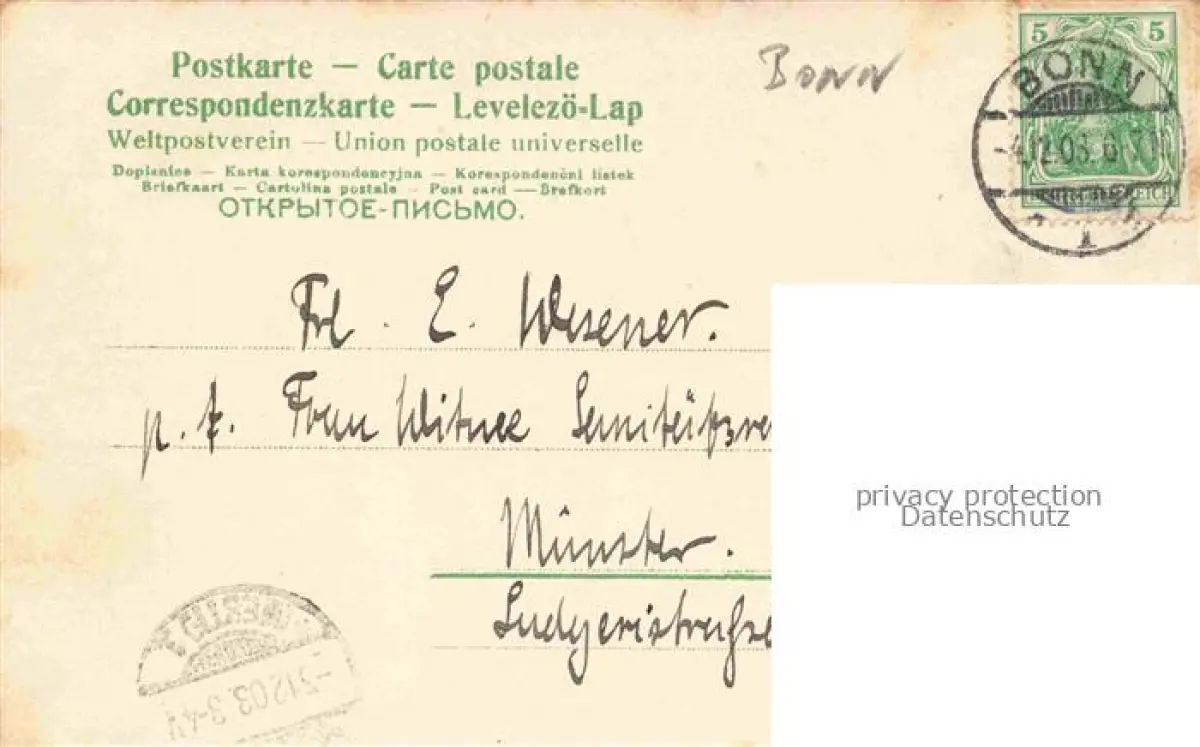 Postkarte — Carte postale
Correspondenzkarte — Levelező-Lap
Weltpostverein — Union postale universelle
Dopisnice — Karta korespondencyjna — Korespondenční listek
Briefkaart — Cartolina postale — Post card — Brefkort
ОТКРЫТОЕ-ПИСЬМО.
Bonn
5 5
BONN
-4.12.03. 6
DEUTSCHES REICH
Frl. E. Wesener.
p. A. Frau Witwe
Münster.
Ludgeristraße
privacy protection
Datenschutz
-5.12.03. 3-4